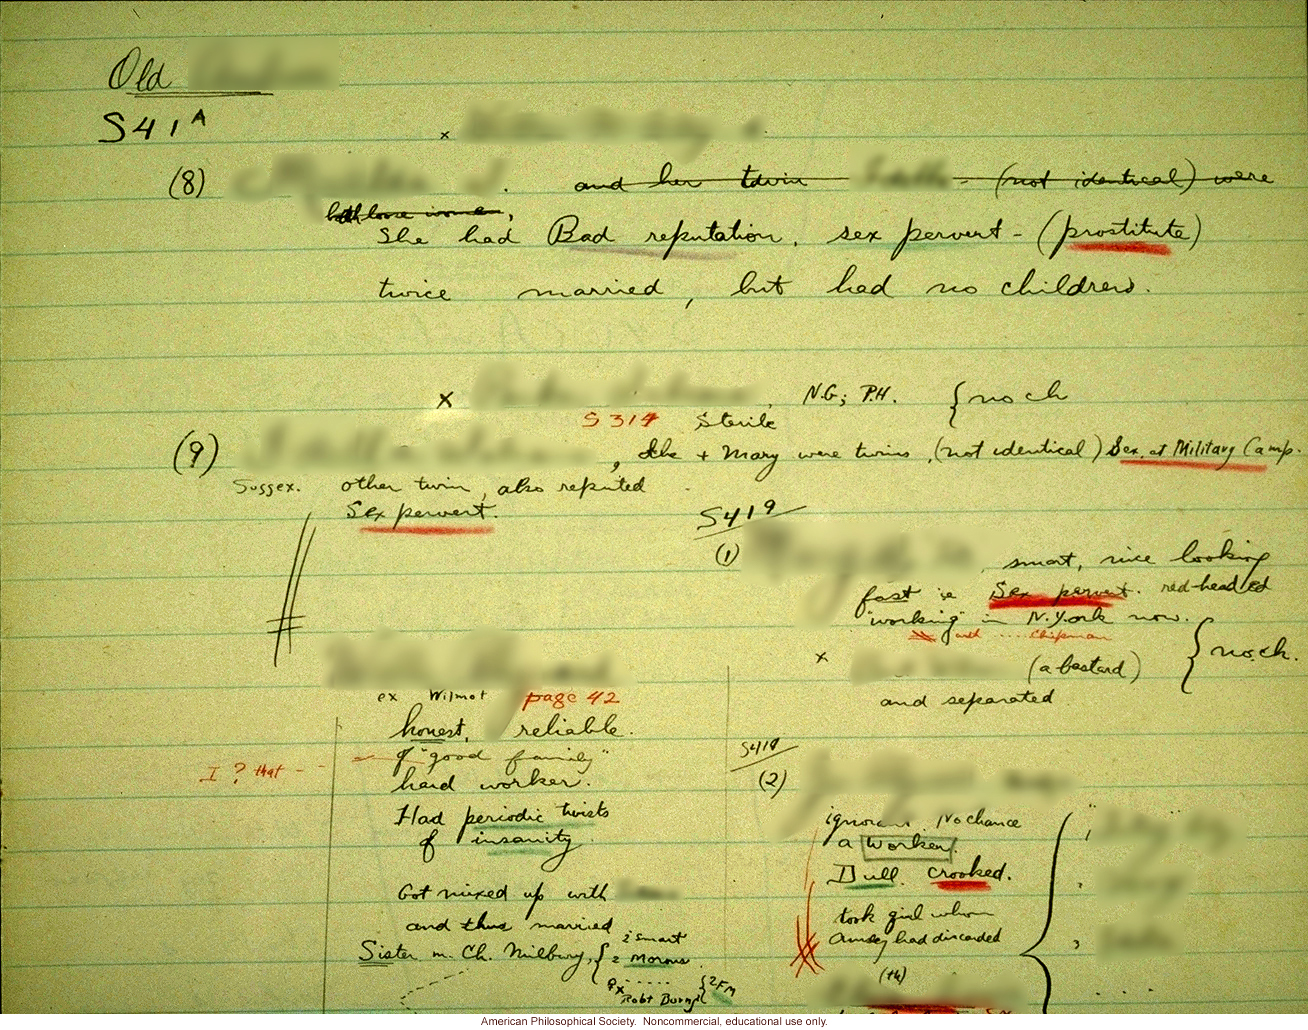 Old
S41A
x
(8) and her twin - (not identical) were
both loose women,
She had Bad reputation, sex pervert - (prostitute)
twice married, but had no children.
x N.G; P.H. { no ch
S314 Sterile
(9) , She + Mary were twins, (not identical) Sex. at Military Camp.
Sussex. other twin, also reputed
Sex pervert.
S419
(1) smart, nice looking
fast i.e Sex pervert. red-headed
"working" in N.York now.
and .... Chipman
x (a bastard) } no.ch.
and separated
ex Wilmot page 42
honest, reliable.
of "good family"
I ? that - - -
hard worker.
Had periodic twists
of insanity.
Got mixed up with
and thus married
Sister m. Ch. Milbury, { 2 smart
2 morons
Robt Burns } 2FM
S419
(2)
ignorant No chance
a worker.
Dull crooked.
took girl whom
had discarded
(th)
American Philosophical Society. Noncommercial, educational use only.